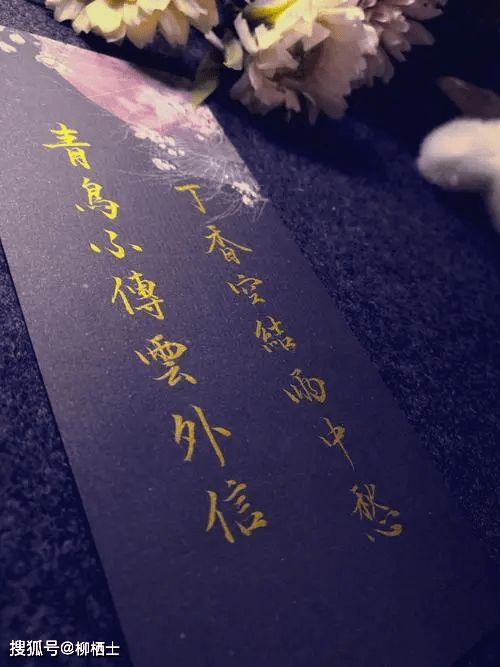 青鳥不傳雲外信
丁香空結雨中愁
搜狐号@柳栖士